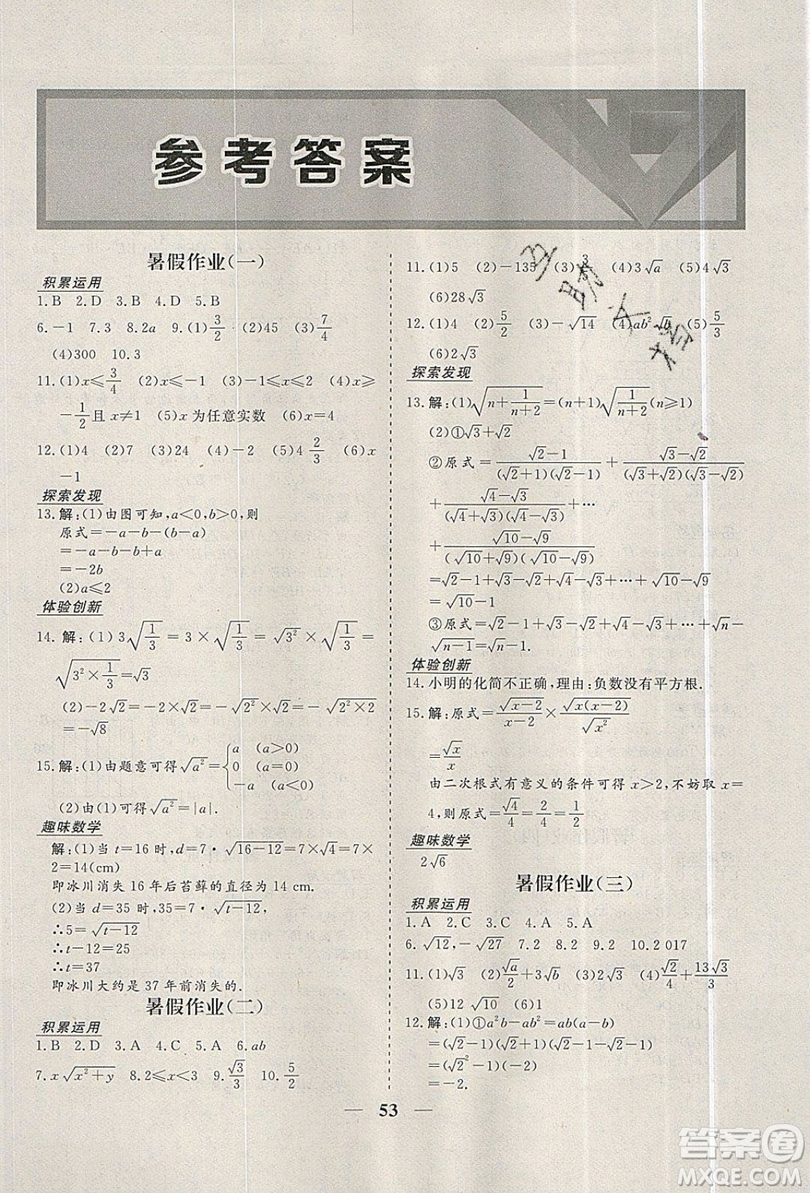 参考答案
暑假作业(一)
积累运用
1.B 2.D 3.A 4.D 5.B
6.-1 7.3 8.2a 9.(1)3/2 (2)45 (3)7/4
(4)300 10.3
11.(1)x≤3/4 (2)x≤3 (3)-1≤x≤2 (4)x≥
-1/2且 x≠1 (5)x 为任意实数 (6)x=4
12.(1)4 (2)7 (3)24 (4)-2 (5)4 2/3 (6)x
-1
探索发现
13.解:(1)由图可知,a<0,b>0,则
原式=-a-b-(b-a)
=-a-b-b+a
=-2b
(2)a≤2
体验创新
14.解:(1)3√(1/3)=3×√(1/3)=√3²×√(1/3)=
√(3²×1/3)=√3
(2)-2√2=-2×√2=-√2²×√2=-√(2²×2)=
-√8
15.解:(1)由题意可得√a²={a (a>0)
0 (a=0)
-a (a<0)
(2)由(1)可得√a²=|a|.
趣味数学
解:(1)当 t=16 时,d=7·√(16-12)=7×√4=7×
2=14(cm)
即冰川消失 16 年后苔藓的直径为 14 cm.
(2)当 d=35 时,35=7·√(t-12),
∴5=√(t-12)
∴t-12=25
∴t=37
即冰川大约是 37 年前消失的.
暑假作业(二)
积累运用
1.B 2.D 3.A 4.A 5.D 6.ab
7.x√(x²+y) 8.2≤x<3 9.√3/3 10.√5/2
11.(1)5 (2)-135 (4)3√a (5)√3/3
(6)28√3
12.(1)4 (2)5/2 (3)-√14 (4)ab²√b (5)5/3
(6)2√3
探索发现
13.解:(1)√(n+1/(n+2))=(n+1)√(1/(n+2))(n≥1)
(2)①√3-√2
②原式=(√2-1)/((√2+1)(√2-1))+(√3-√2)/((√3+√2)(√3-√2))
+(√4-√3)/((√4+√3)(√4-√3))+…
+(√10-√9)/((√10+√9)(√10-√9))
=√2-1+√3-√2+√4-√3+…+√10-√9
=√10-1.
③原式=√2-1+√3-√2+√4-√3+…+√n-
√(n-1)=√n-1.
体验创新
14.小明的化简不正确,理由:负数没有平方根.
15.解:原式=√(x-2)/(x-2)×√(x(x-2))/√x²
=√x/x
由二次根式有意义的条件可得 x>2,不妨取 x=
4,则原式=√4/4=2/4=1/2
趣味数学
2√6
暑假作业(三)
积累运用
1.A 2.C 3.C 4.A 5.A
6.√12,-√27 7.2 8.2 9.2 10.2 017
11.(1)√3 (2)√a/2+√3 (3)√2 (4)√2/4+13√3/9
(5)12 (6)√10
12.解:(1)①a²b-ab²=ab(a-b)
=(-√2)×√2×(-√2-√2)
=(-2)×(-2√2)
=-2.
53
答案圈
MXQE.COM